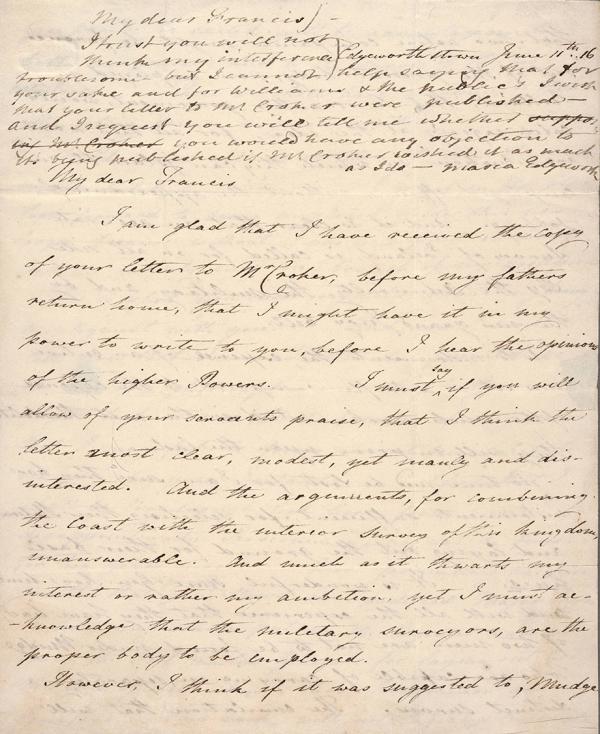 My dear Francis) -
I trust you will not
think my interference
troublesome - but I cannot
Edgeworthstown June 11th. 16
help saying that for
your sake and for William's & the public's I wish
that your letter to Mr Croker were published -
and I request you will tell me whether suppo-
ing Mr Croker you would have any objection to
its being published if Mr Croker wished it as much
as I do - Maria Edgeworth
My dear Francis
I am glad that I have received the copy
of your letter to Mr Croker, before my fathers
return home, that I might have it in my
power to write to you, before I hear the opinions
of the higher Powers. I must say if you will
allow of your servants praise, that I think the
letter most clear, modest, yet manly and dis-
interested. And the arguments, for combining
the Coast with the interior survey of this kingdom,
unanswerable. And much as it thwarts my
interest or rather my ambition, yet I must ac-
-knowledge that the military surveyors, are the
proper body to be employed.
However, I think if it was suggested to, Mudge